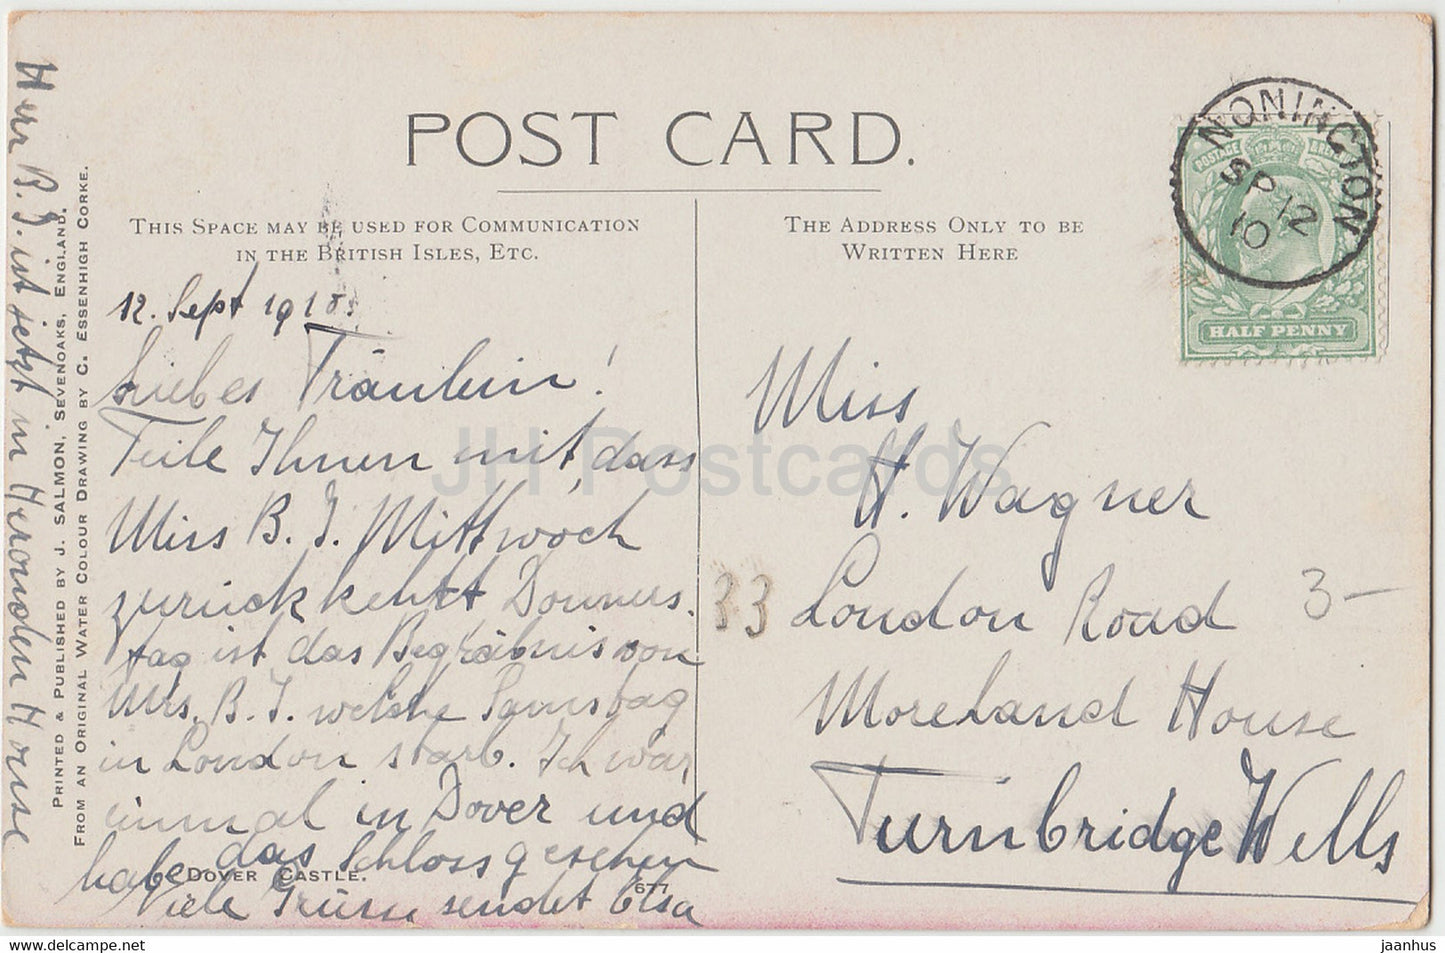 POST CARD.
THIS SPACE MAY BE USED FOR COMMUNICATION
IN THE BRITISH ISLES, ETC.
THE ADDRESS ONLY TO BE
WRITTEN HERE
NONINGTON
SP 12
10
POSTAGE
HALF PENNY
12. Sept 1910.
Liebes Fräulein!
Teile Ihnen mit, dass
Miss B. J. Mittwoch
zurückkehrt Donners.
tag ist das Begräbnis von
Mrs. B. J. welche Samstag
in London starb. Ich war
einmal in Dover und
habe das Schloss gesehen
Viele Grüsse sendet Elsa
DOVER CASTLE.
677
Herr B. J. ist jetzt in Heronden House
PRINTED & PUBLISHED BY J. SALMON, SEVENOAKS, ENGLAND.
FROM AN ORIGINAL WATER COLOUR DRAWING BY C. ESSENHIGH CORKE.
Miss
H. Wagner
33 London Road
Moreland House
Turnbridge Wells
3-
JH Postcards
www.delcampe.net
jaanhus